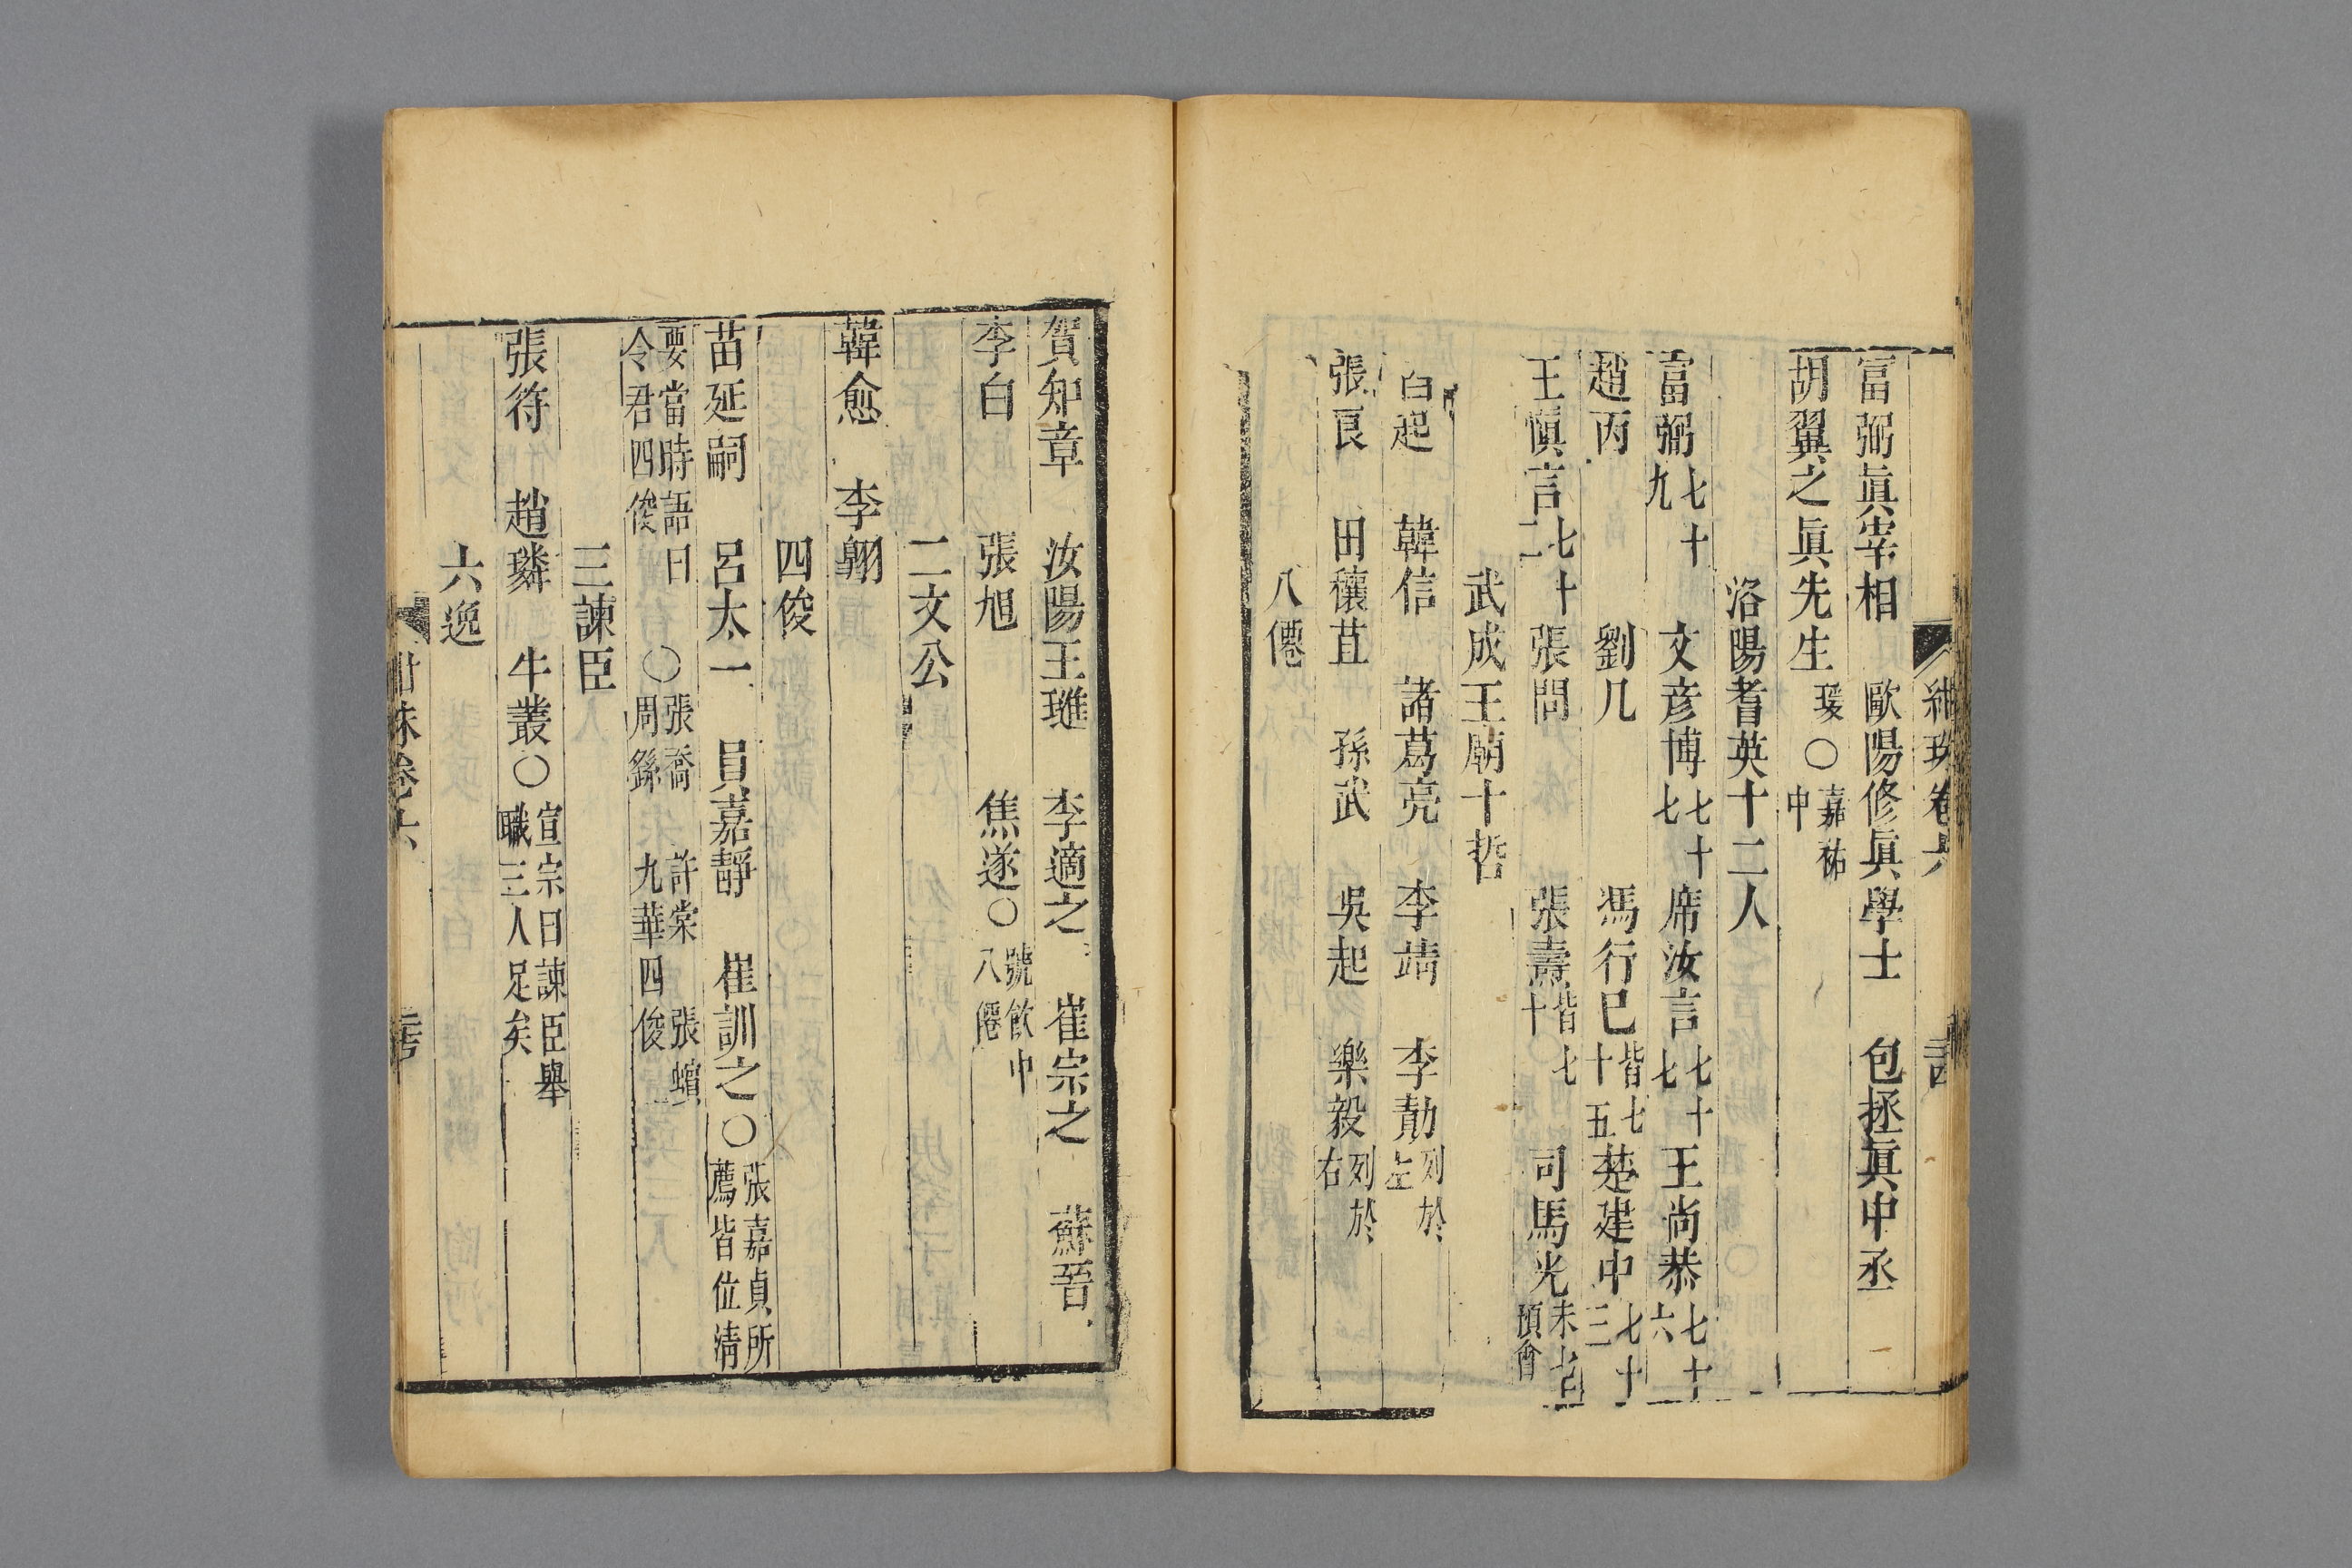 富弼眞宰相　歐陽修眞學士　包拯眞中丞
胡翼之眞先生　瑗○嘉祐中
洛陽耆英十二人
富弼七十九　文彦博七十七　席汝言七十七　王尚恭七十六
趙丙　劉几　馮行巳皆七十五　楚建中七十三
王愼言七十二　張問　張壽皆七十　司馬光未七十預會
武成王廟十哲
白起　韓信　諸葛亮　李靖　李勣列於左
張良　田穰苴　孫武　吳起　樂毅列於右
八僊
賀知章　汝陽王璡　李適之　崔宗之　蘇晉
李白　張旭　焦遂○號飲中八僊
二文公
韓愈　李翺
四俊
苗延嗣　呂太一　員嘉靜　崔訓之○張嘉貞所薦皆位淸
要當時語曰令君四俊　○張喬　許棠　張蠙　周繇　九華四俊
三諫臣
張符　趙璘　牛叢○宣宗曰諫臣舉職三人足矣
六逸